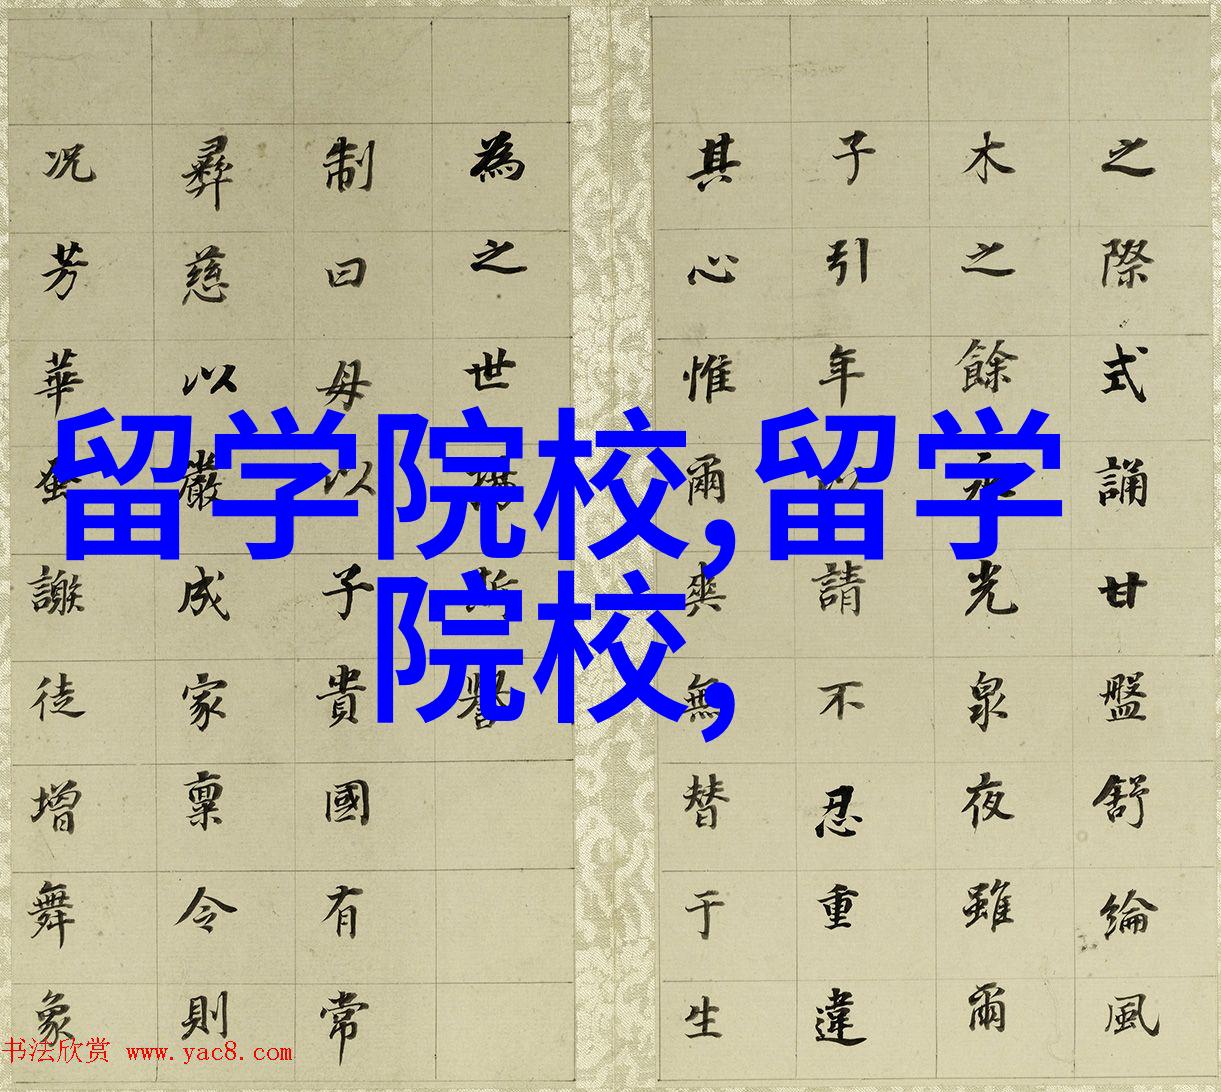 留学院校,留学
院校,
之際式誦甘盤舒綸風
木之餘永光泉夜雖爾
子引年以請不忍重違
其心惟爾爽無替于生
為之世斯譽
制曰母以子貴國有常
彝慈以嚴成家稟令則
況芳華蚤謝徒增舞象
书法欣赏 www.yac8.com